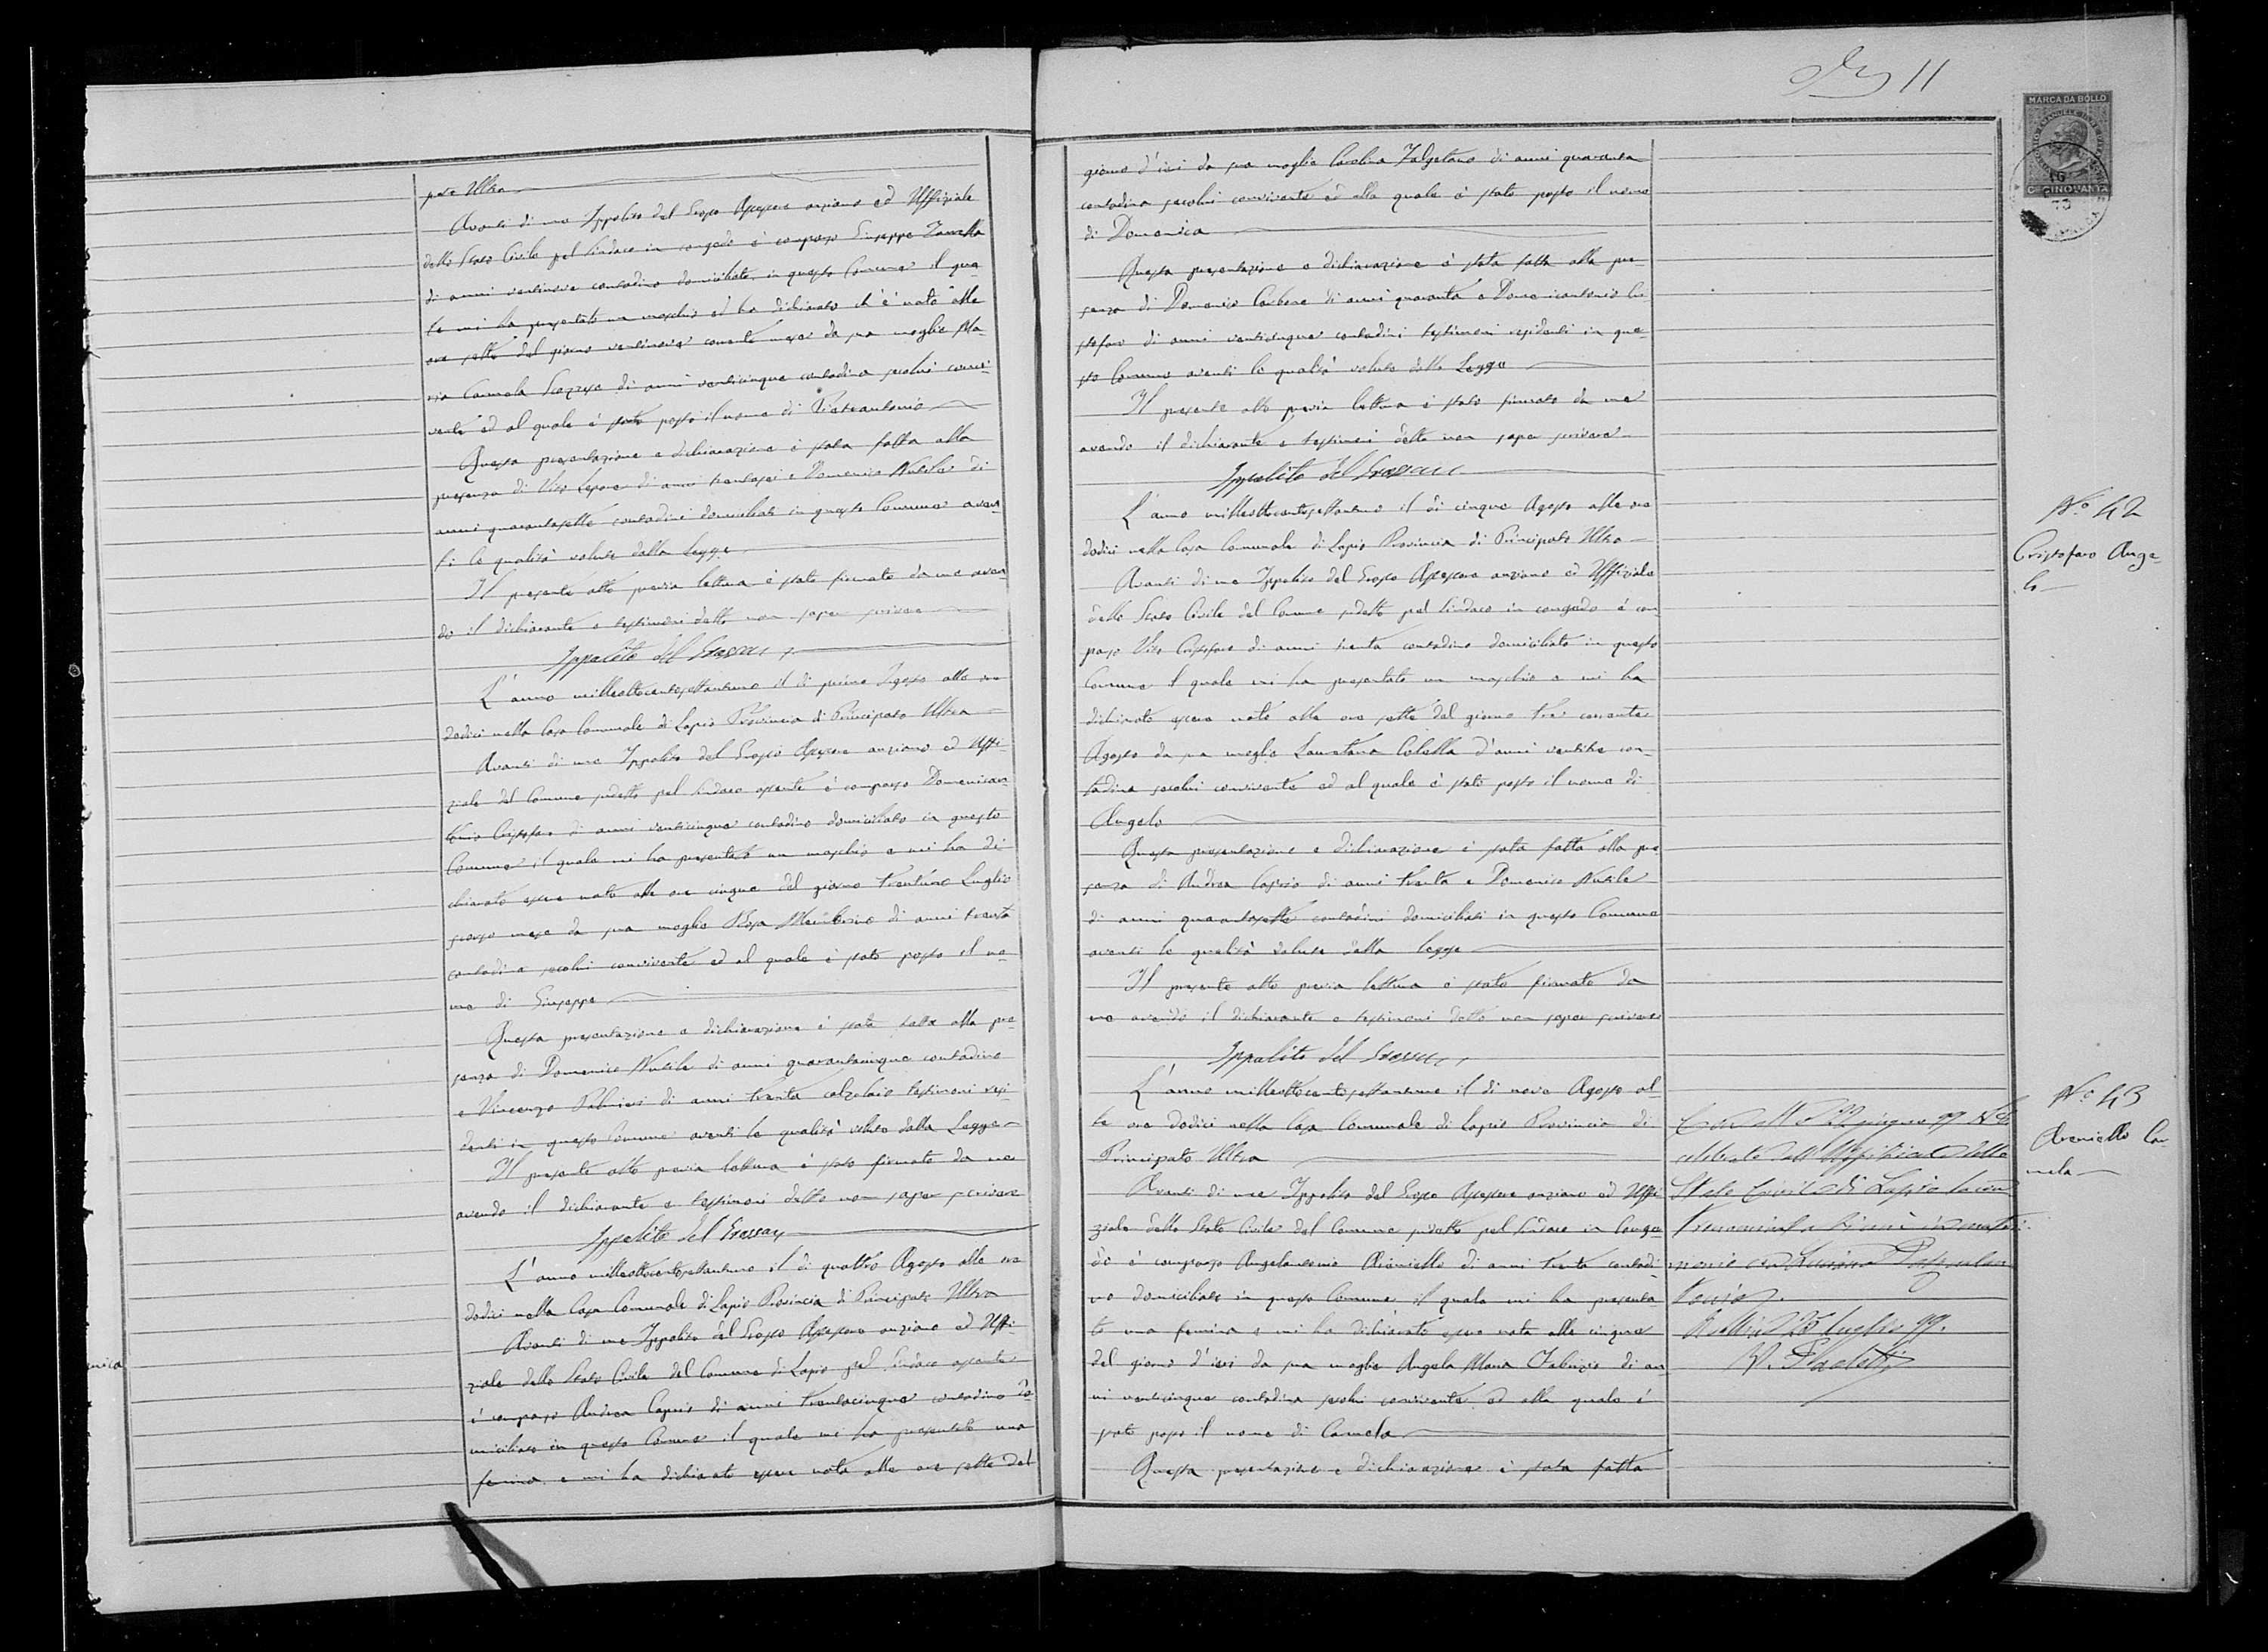 pato Ultra
Avanti di me Ippolito del Grosso Assessore anziano ed Uffiziale
dello Stato Civile pel Sindaco in congedo è comparso Giuseppe
di anni ventinove contadino domiciliato in questo Comune il qua
le mi ha presentato un maschio ed ha dichiarato ch'è nato alle
ore sette del giorno ventinove corrente mese da sua moglie Ma-
ria Carmela di anni venticinque contadina secolui convi-
vente ed al quale è stato posto il nome di Pietrantonio
Questa presentazione e dichiarazione è stata fatta alla
presenza di Vito Lepore di anni trentasei e Domenico Nutile di
anni quarantasette contadini domiciliati in questo Comune aven
ti le qualità volute dalla Legge
Il presente atto previa lettura è stato firmato da me aven
do il dichiarante e testimoni detto non saper scrivere
Ippolito del Grosso
L'anno milleottocentosettantuno il dì primo Agosto alle ore
dodici nella Casa Comunale di Lapio Provincia di Principato Ultra
Avanti di me Ippolito del Grosso Assessore anziano ed Uffi
ziale del Comune sudetto pel Sindaco assente è comparso Domenican
tonio Cristofaro di anni venticinque contadino domiciliato in questo
Comune il quale mi ha presentato un maschio e mi ha di
chiarato essere nato alle ore cinque del giorno trentuno Luglio
scorso mese da sua moglie Rosa di anni trenta
contadina secolui convivente ed al quale è stato posto il no-
me di Giuseppe
Questa presentazione e dichiarazione è stata fatta alla pre
senza di Domenico Nutile di anni quarantacinque contadino
e Vincenzo Palmieri di anni trenta calzolaio testimoni resi
denti in questo Comune aventi le qualità volute dalla Legge
Il presente atto previa lettura è stato firmato da me
avendo il dichiarante e testimoni detto non saper scrivere
Ippolito del Grosso
L'anno milleottocentosettantuno il dì quattro Agosto alle ore
dodici nella Casa Comunale di Lapio Provincia di Principato Ultra
Avanti di me Ippolito del Grosso Assessore anziano ed Uffi
ziale dello Stato Civile del Comune di Lapio pel Sindaco assente
è comparso Andrea Caprio di anni trentacinque contadino do
miciliato in questo Comune il quale mi ha presentato una
femina e mi ha dichiarato essere nata alle ore sette del
nica
11
MARCA DA BOLLO
C. CINQUANTA
giorno d'ieri da sua moglie Carolina di anni quaranta
contadina secolui convivente ed alla quale è stato posto il nome
di Domenica
Questa presentazione e dichiarazione è stata fatta alla pre
senza di Domenico Carbone di anni quaranta e Domenicantonio Cri
stofaro di anni venticinque contadini testimoni residenti in que-
sto Comune aventi le qualità volute dalla Legge
Il presente atto previa lettura è stato firmato da me
avendo il dichiarante e testimoni detto non saper scrivere
Ippolito del Grosso
L'anno milleottocentosettantuno il dì cinque Agosto alle ore
dodici nella Casa Comunale di Lapio Provincia di Principato Ultra
Avanti di me Ippolito del Grosso Assessore anziano ed Uffiziale
dello Stato Civile del Comune sudetto pel Sindaco in congedo è com
parso Vito Cristofaro di anni trenta contadino domiciliato in questo
Comune il quale mi ha presentato un maschio e mi ha
dichiarato essere nato alle ore sette del giorno tre corrente
Agosto da sua moglie Lauretana Colella d'anni ventitre con
tadina secolui convivente ed al quale è stato posto il nome di
Angelo
Questa presentazione e dichiarazione è stata fatta alla pre
senza di Andrea Caprio di anni trenta e Domenico Nutile
di anni quarantasette contadini domiciliati in questo Comune
aventi le qualità volute dalla legge
Il presente atto previa lettura è stato firmato da
me avendo il dichiarante e testimoni detto non saper scrivere
Ippolito del Grosso
L'anno milleottocentosettantuno il dì nove Agosto al
le ore dodici nella Casa Comunale di Lapio Provincia di
Principato Ultra
Avanti di me Ippolito del Grosso Assessore anziano ed Uffi
ziale dello Stato Civile del Comune sudetto pel Sindaco in Conge
do è comparso Angelantonio Arianiello di anni trenta contadi
no domiciliato in questo Comune il quale mi ha presenta
to una femina e mi ha dichiarato essere nata alle cinque
del giorno d'ieri da sua moglie Angela Maria Fabrizio di an
ni venticinque contadina secolui convivente ed alla quale è
stato posto il nome di Carmela
Questa presentazione e dichiarazione è stata fatta
No. 42
Cristofaro Ange
lo
No. 43
Arianiello Car
mela
Con atto 22 giugno 99
celebrato dall'Uffiziale dello
Stato Civile di Lapio la con
tronominata si unì in matri
monio con
tonio.
25 luglio 99.